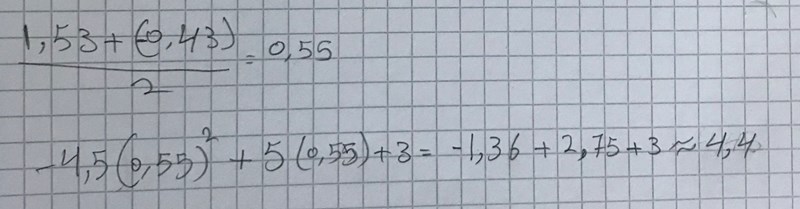 1,53 + (-0,43) / 2 = 0,55
-4,5(0,55)² + 5(0,55) + 3 = -1,36 + 2,75 + 3 ≈ 4,4